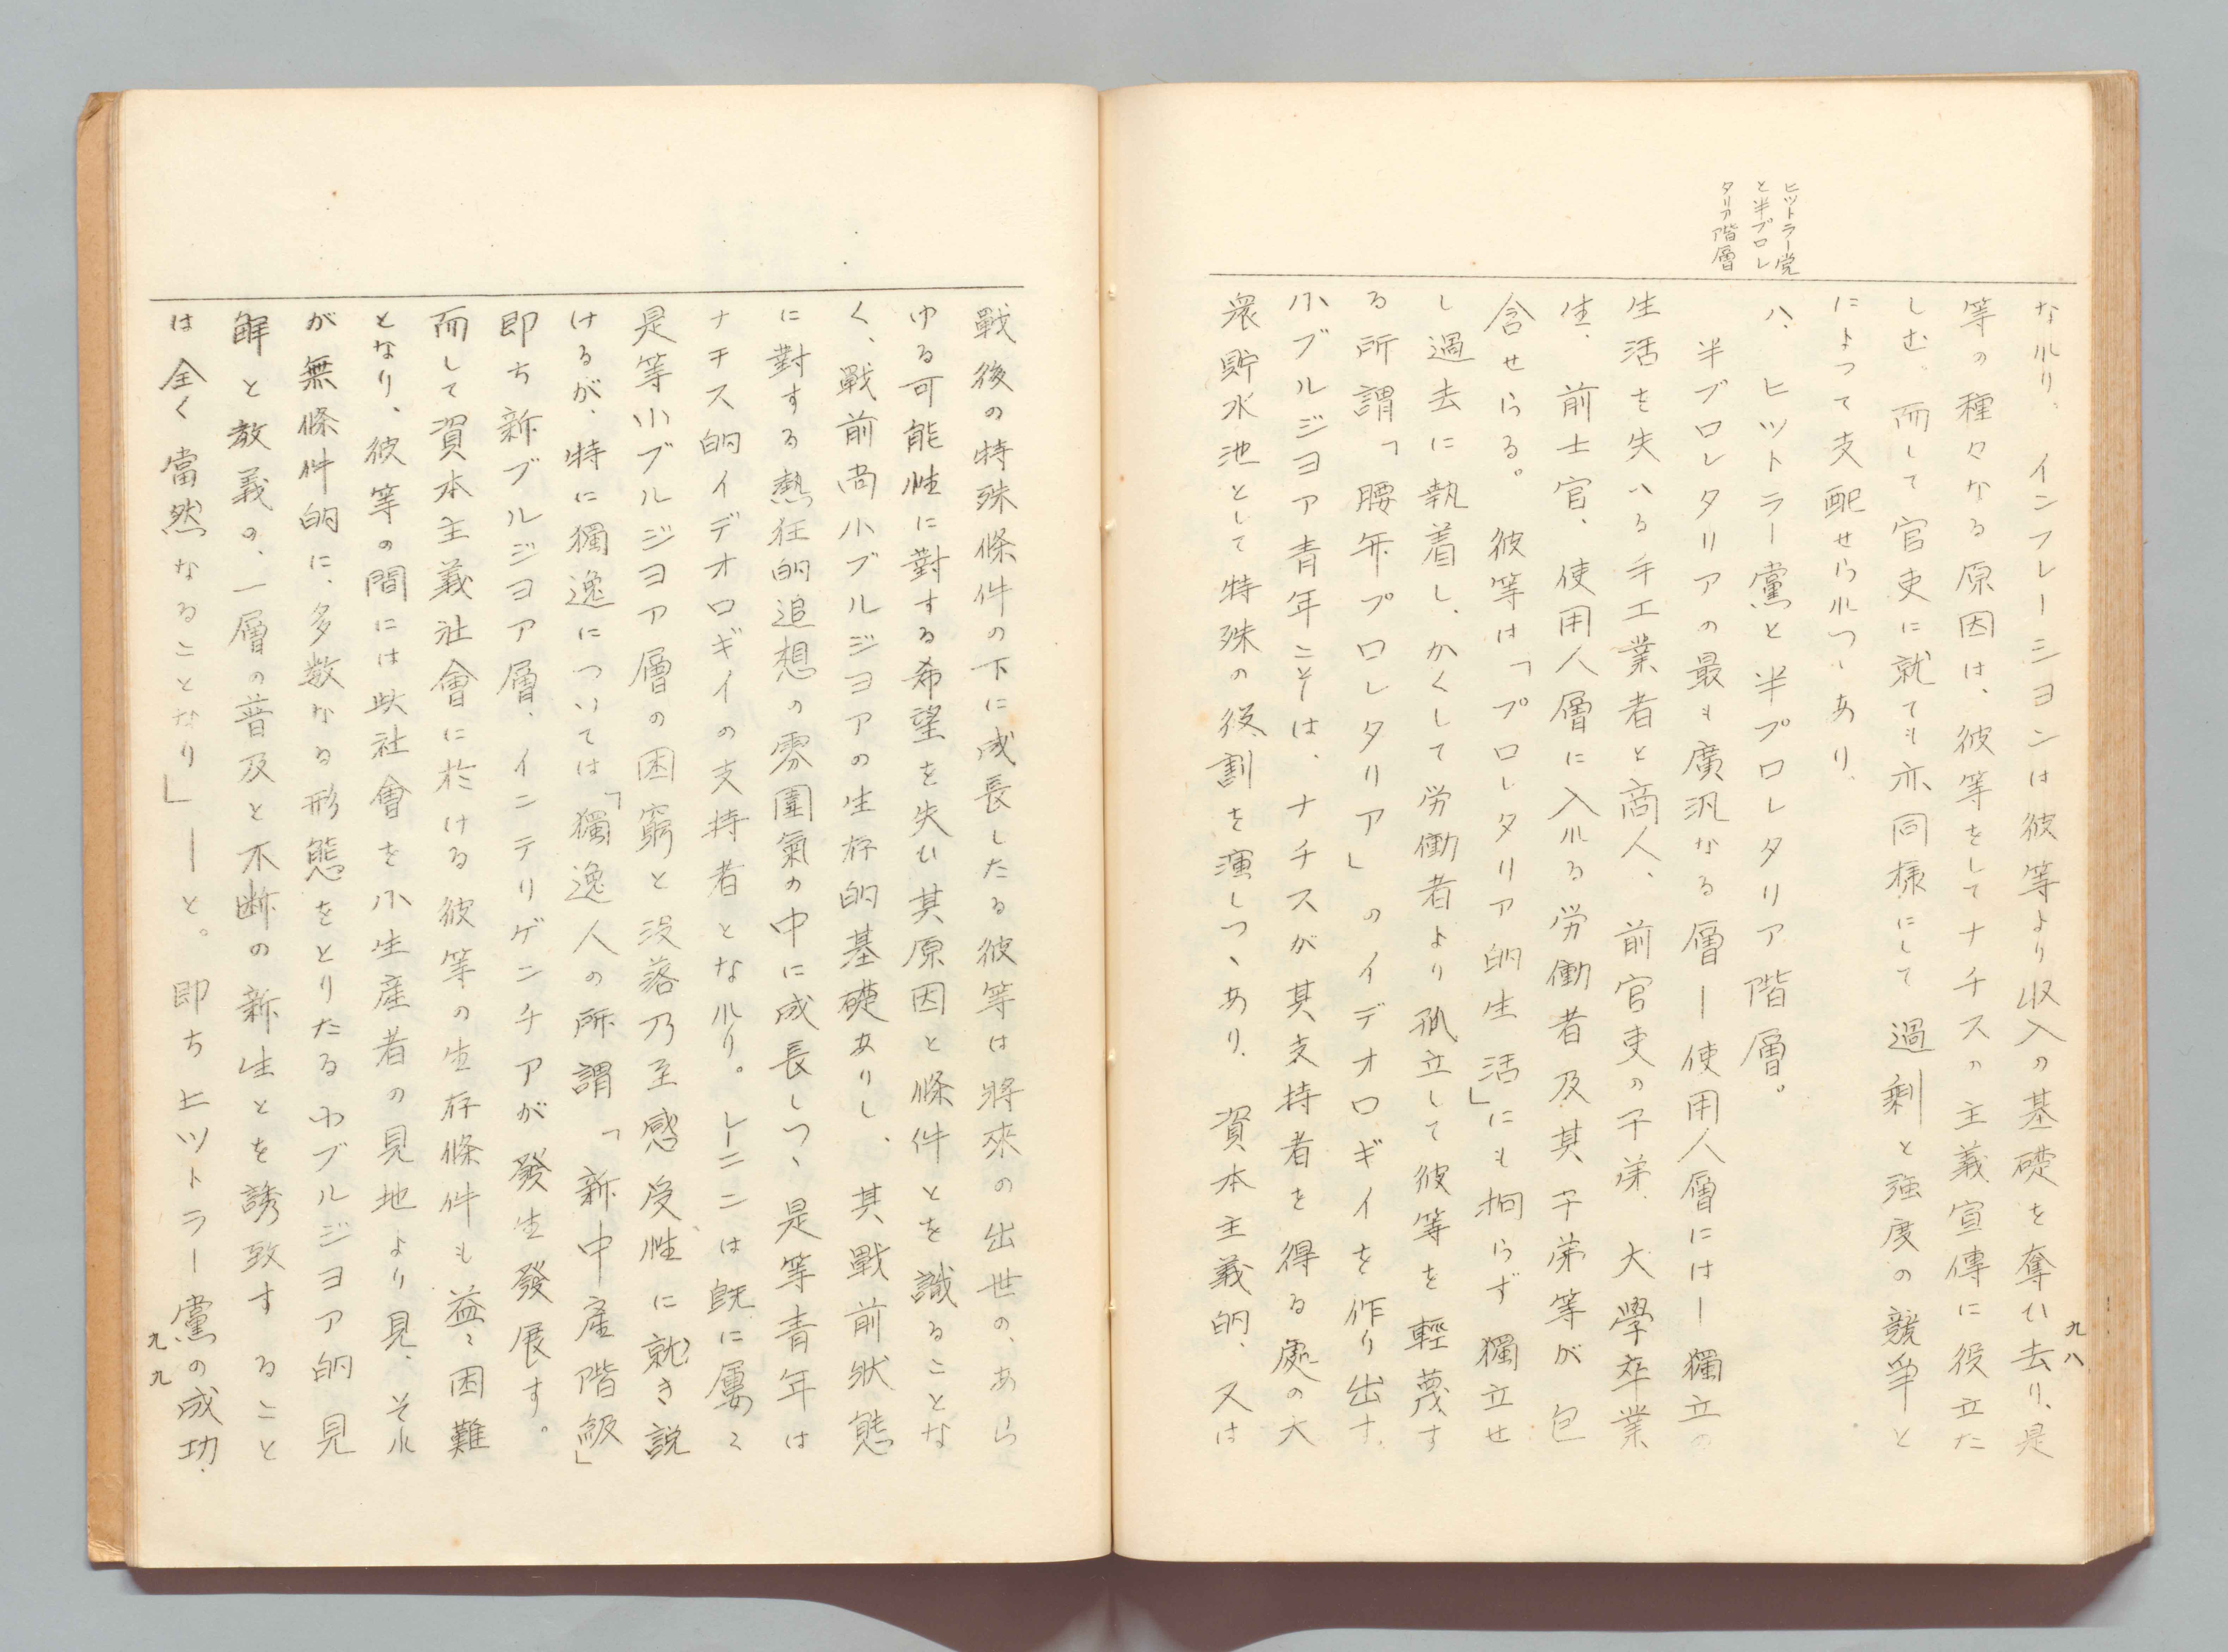 九八
ヒットラー党
と半プロレ
タリア階層
なれり。インフレーションは彼等より収入の基礎を奪ひ去り、是
等の種々なる原因は、彼等をしてナチスの主義宣傳に役立た
しむ。而して官吏に就ても亦同様にして過剰と強度の競争と
によって支配せられつゝあり。
八、ヒットラー黨と半プロレタリア階層。
半プロレタリアの最も廣汎なる層ー使用人層にはー獨立の
生活を失へる手工業者と商人、前官吏の子弟、大學卒業
生、前士官、使用人層に入れる労働者及其子弟等が包
含せらる。彼等は「プロレタリア的生活」にも拘らず獨立せ
し過去に執着し、かくして労働者より孤立して彼等を輕蔑す
る所謂「腰弁プロレタリア」のイデオロギイを作り出す。
小ブルジヨア青年こそは、ナチスが其支持者を得る處の大
衆貯水池として特殊の役割を演しつゝあり。資本主義的、又は
戰後の特殊條件の下に成長したる彼等は將來の出世の、あら
ゆる可能性に對する希望を失ひ其原因と條件とを識ることな
く、戰前尚小ブルジヨアの生存的基礎ありし、其戰前狀態
に對する熱狂的追想の雰圍氣の中に成長しつゝ是等青年は
ナチス的イデオロギイの支持者となれり。レーニンは既に屢々
是等小ブルジヨア層の困窮と没落乃至感受性に就き説
けるが、特に獨逸については「獨逸人の所謂「新中産階級」
即ち新ブルジヨア層、インテリゲンチアが發生發展す。
而して資本主義社會に於ける彼等の生存條件も益々困難
となり、彼等の間には此社會を小生産者の見地より見、それ
が無條件的に、多數なる形態をとりたる小ブルジヨア的見
解と教義の、一層の普及と不断の新生とを誘致すること
は全く當然なることなり」ーと。即ちヒットラー黨の成功、
九九